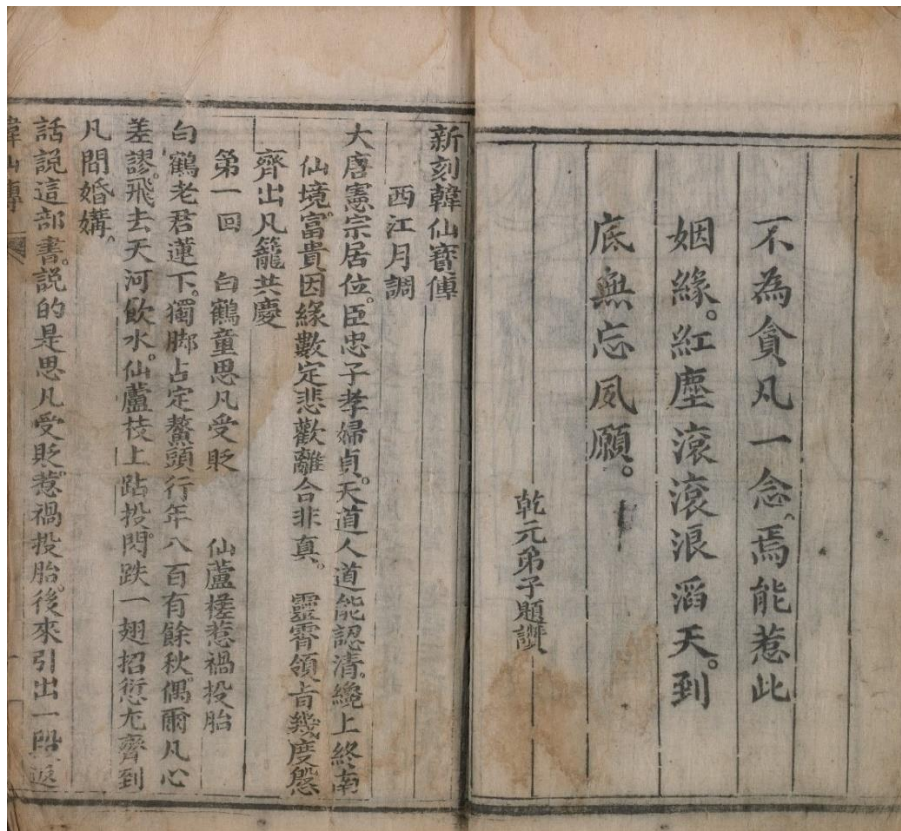 不為貪凡一念。焉能惹此
姻緣。紅塵滚滚浪滔天。到
底無忘夙願。
乾元弟子題讚
新刻韓仙寳傳
西江月調
大唐憲宗居位。臣忠子孝婦貞。天道人道能認清。纔上終南
仙境。富貴因緣數定悲歡離合非真。靈霄領旨幾度慇
齊出凡籠共慶
第一回 白鶴童思凡受貶 仙蘆槎惹禍投胎
白鶴老君蓮下。獨脚占定鰲頭行年八百有餘秋。偶爾凡心
差謬。飛去天河飲水。仙蘆枝上跕投閃。跌一翅招愆尤齊到
凡間婚媾。
話說這部書。說的是思凡受貶。惹禍投胎。後來引出一段
韓仙傳 一